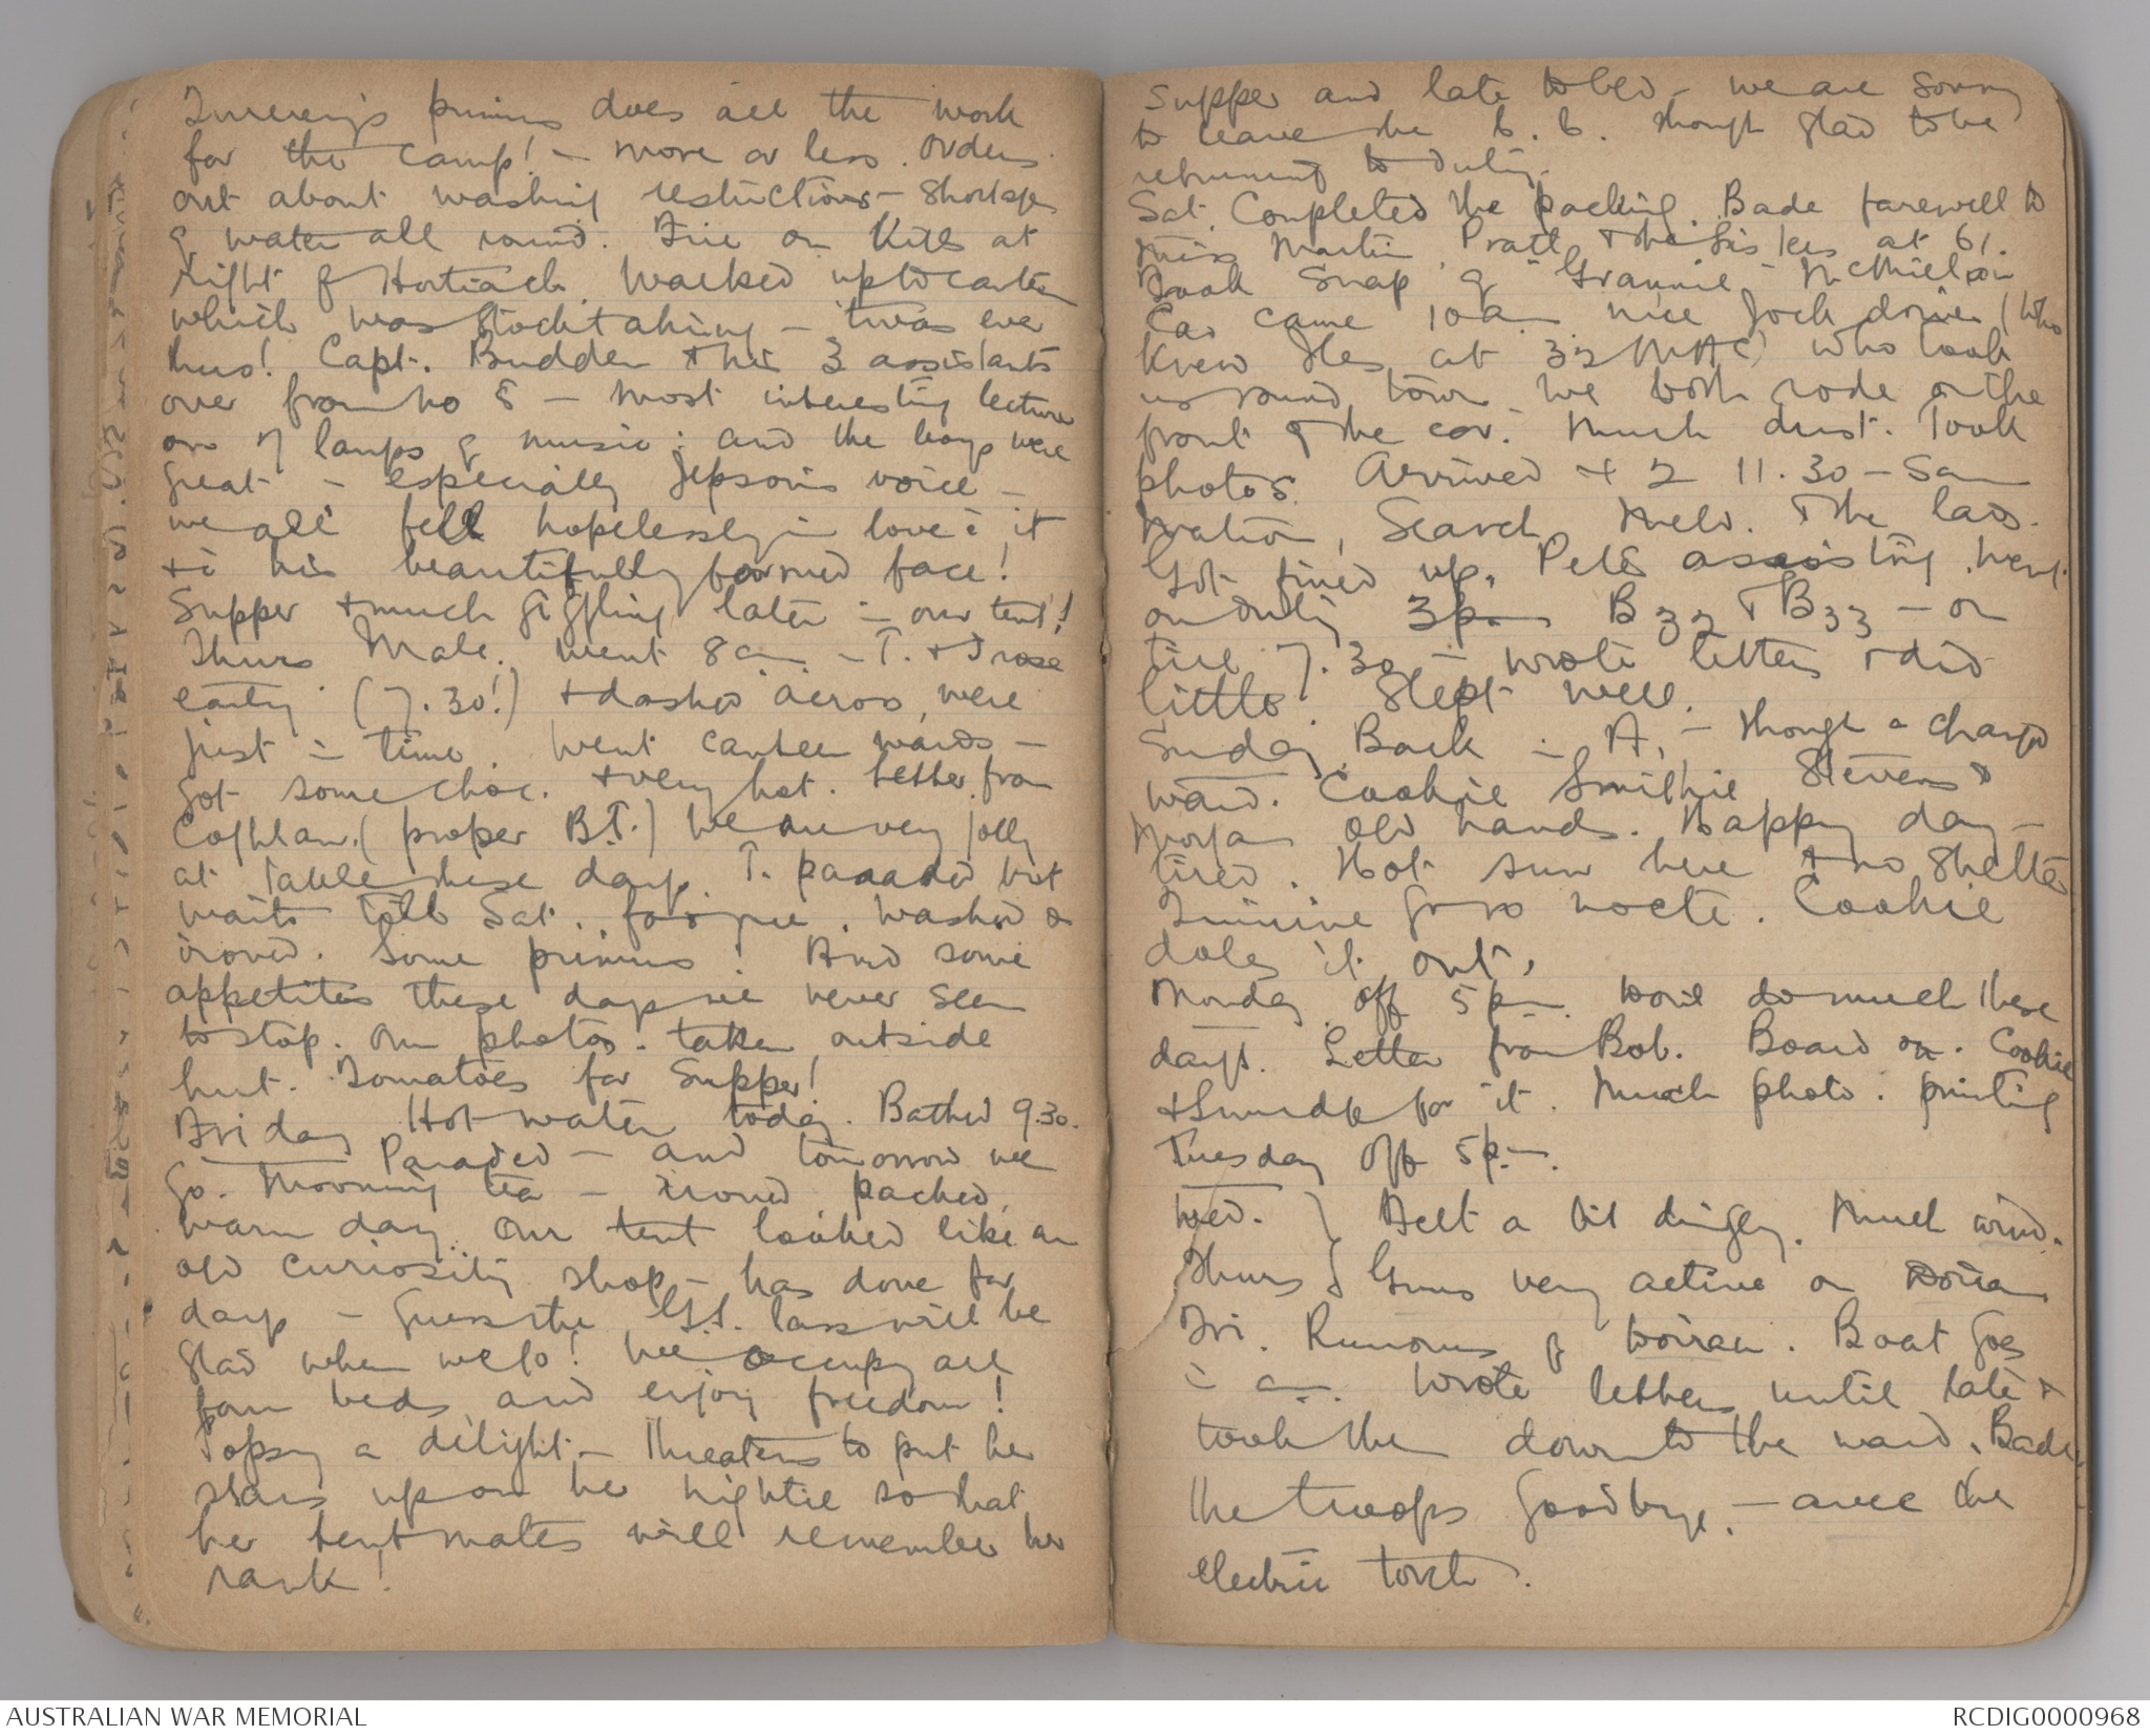 primus does all the work
for the camp! - more or less. Orders
out about washing restrictions - shortage
of water all round. Fire on hills at
right of Hortiach. Walked up to canteen
which was stocktaking - twas ever
thus! Capt. Budden & his 3 assistants
over from no 8 - most interesting lecture
on 7 lamps of music: and the boys were
great - especially Jepson's voice -
we all fell hopelessly in love c̄ it
& c̄ his beautifully formed face!
Supper & much giggling later in our tent!
Thurs Male. went 8am - T. & I rose
early (7.30!) & dashed across, were
just in time. Went canteen wards -
got some choc. & very hot. Letter from
Coghlan. (proper B.T.) We are very jolly
at table these days. T. paraded but
waits till Sat. for me. Washed &
ironed. Some primus! And some
appetites these days we never seem
to stop. Our photos. taken outside
hut. Tomatoes for Supper!
Friday Hot water today. Bathed 9.30.
Paraded - and tomorrow we
go. Morning tea - ironed packed,
warm day. Our tent looked like an
old curiosity shop - has done for
days - Guess the G.S. lass will be
glad when we go! We occupy all
four beds and enjoy freedom!
Topsy a delight - threatens to put her
stars up on her nightie so that
her tent mates will remember her
rank!
Supper and late to bed - we are sorry
to leave the 6. 6. though glad to be
returning to duty.
Sat. Completed the packing. Bade farewell to
Miss Martin, Pratt, & the Sisters at 61.
Took snap of "Grannie"
Car came 10am nice Jock driver (who
knew Iles at 32 MAC) who took
us round town we both rode on the
front of the car. Much dust. Took
photos. Arrived 42 11.30 - Saw
Matron, Search, Melv. & the lads.
Got fixed up, Pete assisting. Went
on duty 3pm B32 & B33 - on
till 7.30 - wrote letters & did
little. Slept well.
Sunday Back in A, - though a changed
ward. Cookie Smithie Stevens &
Morgan old hands. Happy day -
tired. Hot sun here & no shelter
Quinine grs 10 nocte. Cookie
doles it out.
Monday off 5pm. Don't do much these
days. Letter from Bob. Board on. Cookie
& for it. Much photo. printing
Tuesday Off 5pm.
Wed. } Felt a bit dingy. Much wind.
Thurs } Guns very active on Doiran
Fri. Rumours of Doiran. Boat goes
in am. Wrote letters until late &
took them down to the ward. Bade
the troops Goodbye. - avec the
electric torch.
AUSTRALIAN WAR MEMORIAL
RCDIG0000968